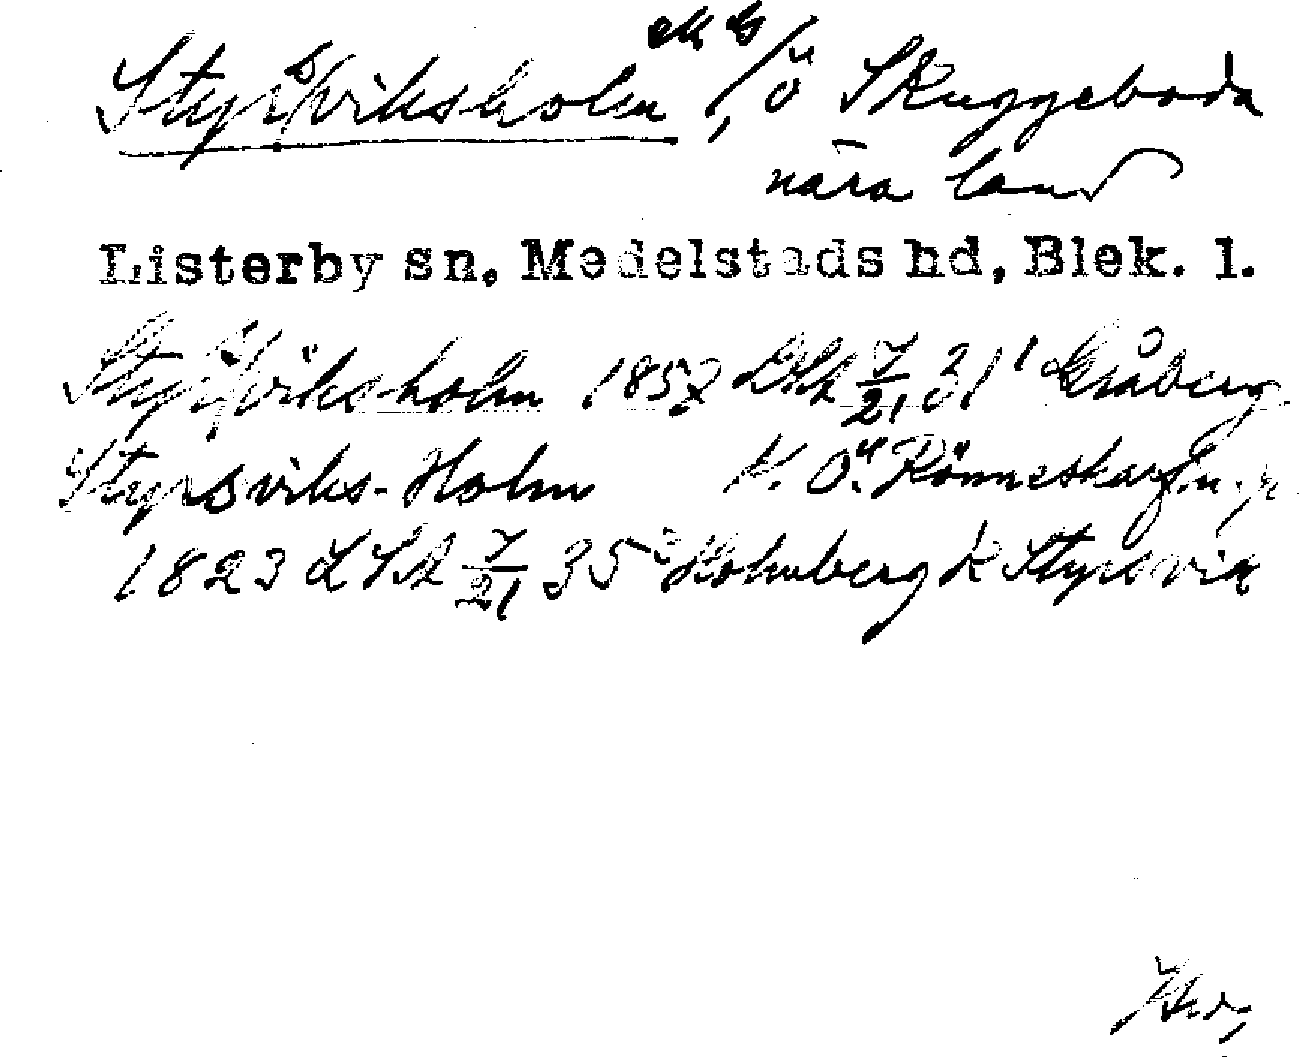 Styrsviksholm, ö Skuggeboda
nära land
Listerby sn, Medelstads hd, Blek. l.
Styrsviksholm 1857 LSA 7/21 31' Gråberg
Styrsviks-Holm K. Ö.
1823 LSA 7/21 35 Holmberg K Styrsvik